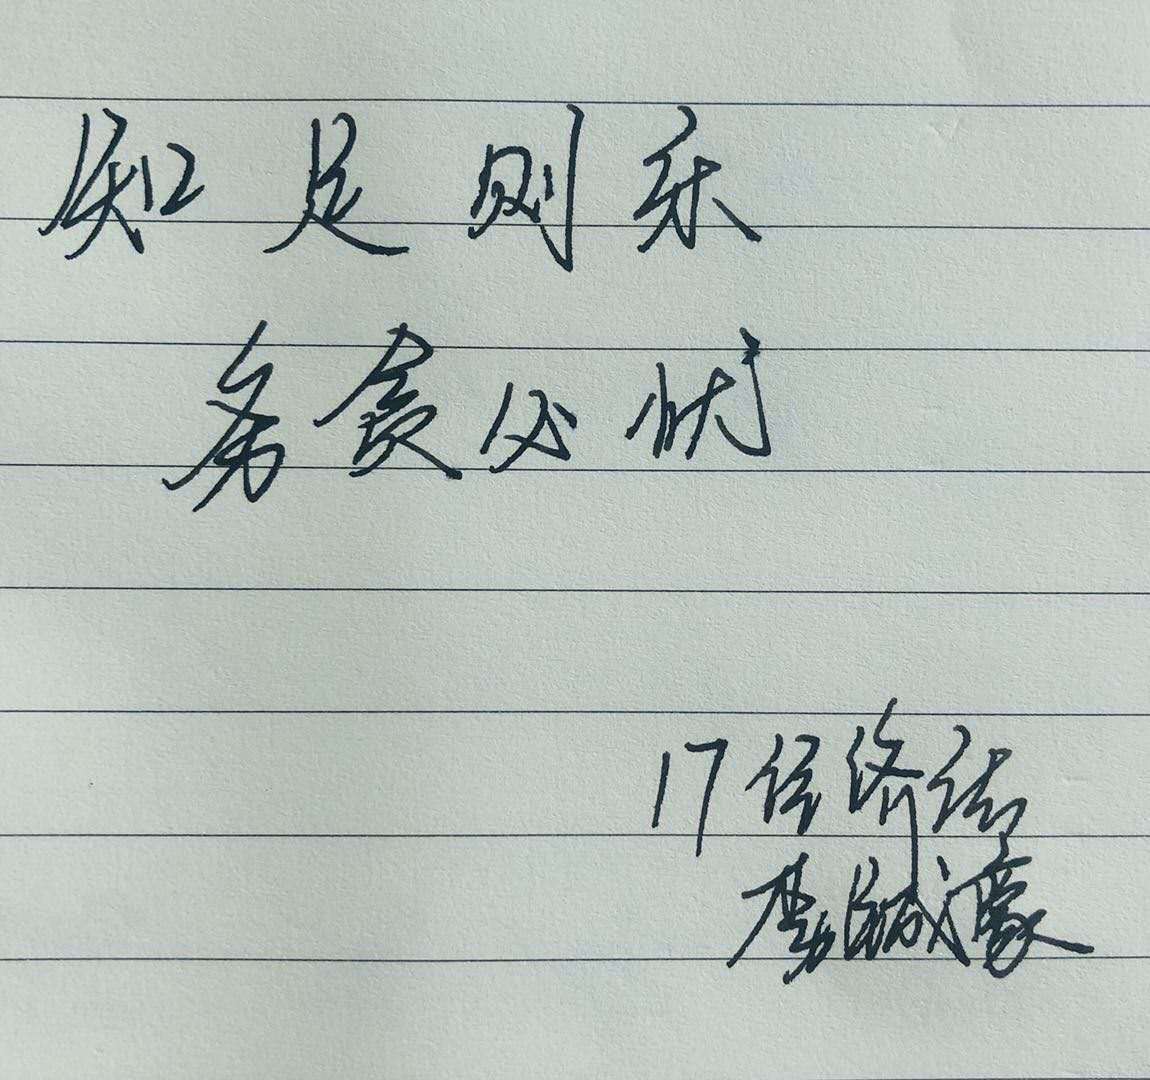 知足则乐
务贪必忧
17经济法